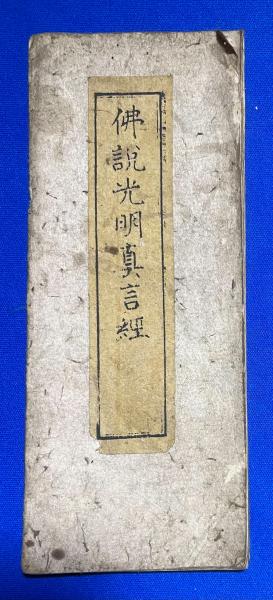 佛說光明真言經